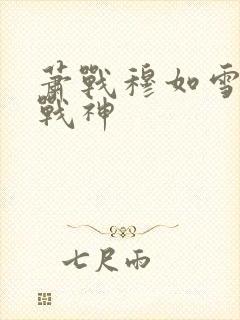 萧戰穆如雪
戰神
七尺雨